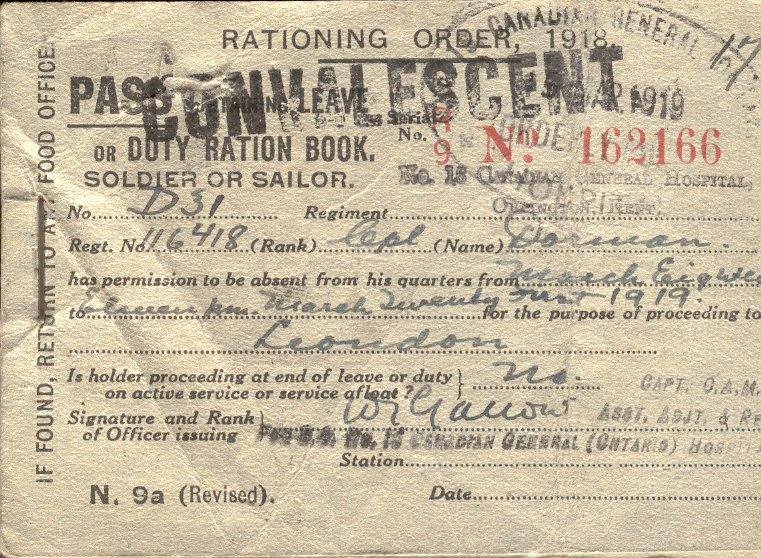 RATIONING ORDER, 1918.
CANADIAN GENERAL
CONVALESCENT
PASS LEAVE
MAR 1919
OR DUTY RATION BOOK.
Serial No.
No. 162166
SOLDIER OR SAILOR.
No. 16 CANADIAN GENERAL HOSPITAL,
ORPINGTON, KENT.
No. D31 Regiment
Regt. No. 116418 (Rank) Cpl (Name) Dorman.
has permission to be absent from his quarters from March
to Eleven pm. March Twenty first 1919. for the purpose of proceeding to
London
Is holder proceeding at end of leave or duty
on active service or service afloat? } No.
CAPT. C.A.M.
Signature and Rank
of Officer issuing }
ASST. ADJT. &
No. 16 CANADIAN GENERAL (ONTARIO)
Station
N. 9a (Revised).
Date
IF FOUND, RETURN TO ANY FOOD OFFICE.